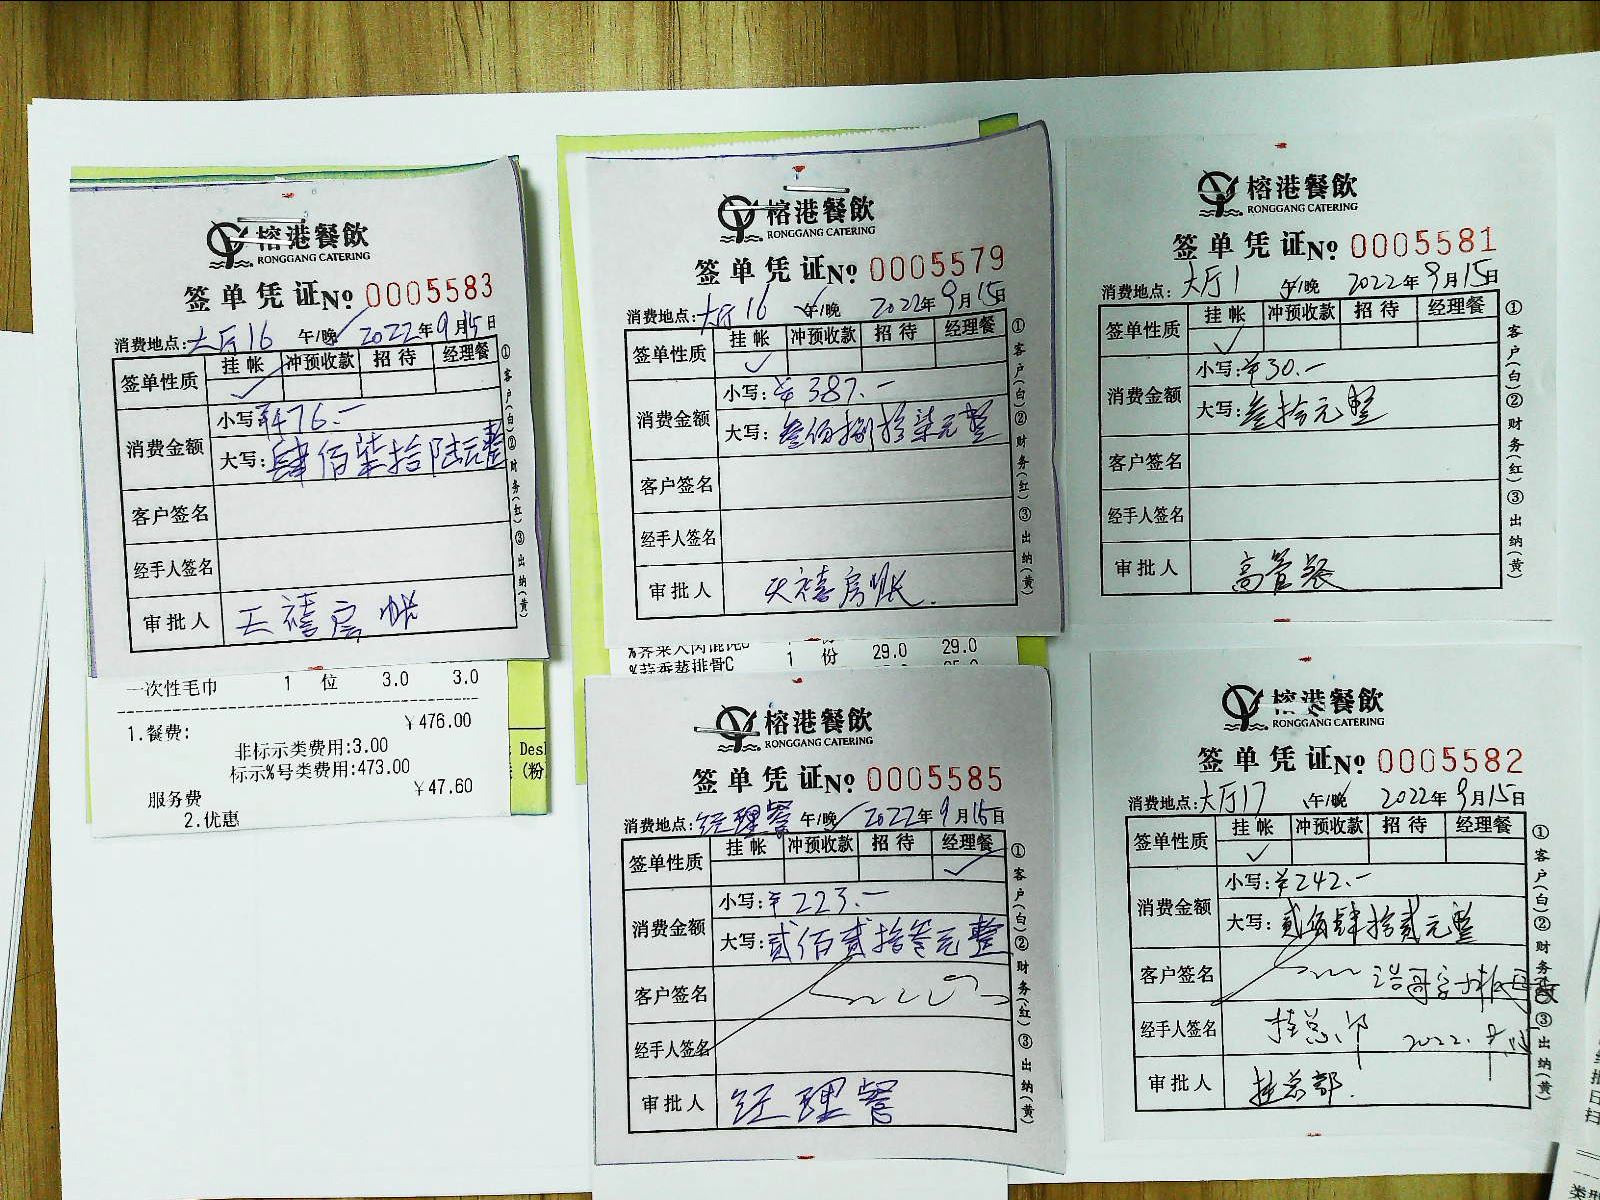 榕港餐飲
RONGGANG CATERING
签单凭证No. 0005583
消费地点:大厅16 午/晚 2022年9月15日
签单性质 挂帐 冲预收款 招待 经理餐
消费金额
小写:¥476.—
大写:肆佰柒拾陆元整
客户签名
经手人签名
审批人 天禧房帐
①客户(白)②财务(红)③出纳(黄)
一次性毛巾 1 位 3.0 3.0
1.餐费: ¥476.00
非标示类费用:3.00
标示%号类费用:473.00
服务费 ¥47.60
2.优惠
榕港餐飲
RONGGANG CATERING
签单凭证No. 0005579
消费地点:大厅16 午/晚 2022年9月15日
签单性质 挂帐 冲预收款 招待 经理餐
消费金额
小写:¥387.—
大写:叁佰捌拾柒元整
客户签名
经手人签名
审批人 天禧房帐.
①客户(白)②财务(红)③出纳(黄)
1 份 29.0 29.0
榕港餐飲
RONGGANG CATERING
签单凭证No. 0005581
消费地点:大厅1 午/晚 2022年9月15日
签单性质 挂帐 冲预收款 招待 经理餐
消费金额
小写:¥30.—
大写:叁拾元整
客户签名
经手人签名
审批人 高管餐
①客户(白)②财务(红)③出纳(黄)
榕港餐飲
RONGGANG CATERING
签单凭证No. 0005585
消费地点:经理餐 午/晚 2022年9月15日
签单性质 挂帐 冲预收款 招待 经理餐
消费金额
小写:¥223.—
大写:贰佰贰拾叁元整
客户签名
经手人签名
审批人 经理餐
①客户(白)②财务(红)③出纳(黄)
榕港餐飲
RONGGANG CATERING
签单凭证No. 0005582
消费地点:大厅17 午/晚 2022年9月15日
签单性质 挂帐 冲预收款 招待 经理餐
消费金额
小写:¥242.—
大写:贰佰肆拾贰元整
客户签名
经手人签名 挂总部 2022.9.15
审批人 挂总部.
①客户(白)②财务(红)③出纳(黄)